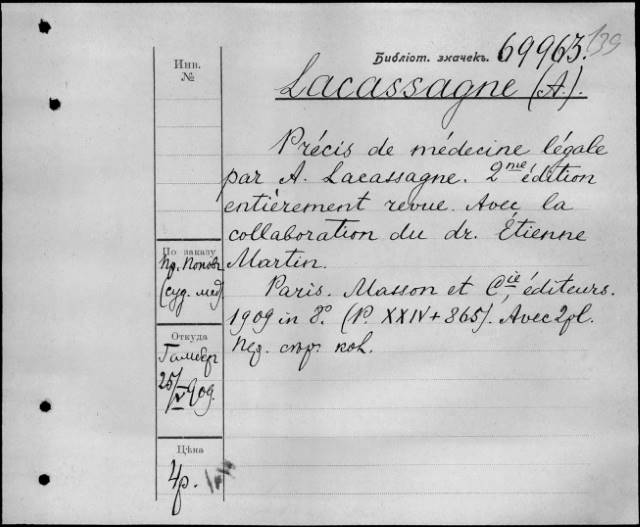 Библіот. значекъ. 69963. 139
Инв.
№
Lacassagne (A.).
Précis de médecine légale
par A. Lacassagne. 2me édition
entièrement revue. Avec la
collaboration du dr. Étienne
Martin.
Paris. Masson et Cie, éditeurs.
1909 in 8º. (P. XXIV+865). Avec 2 pl.
По заказу
пр. Попова
(суд. мед)
Откуда
25/V 909.
Цѣна
4р.